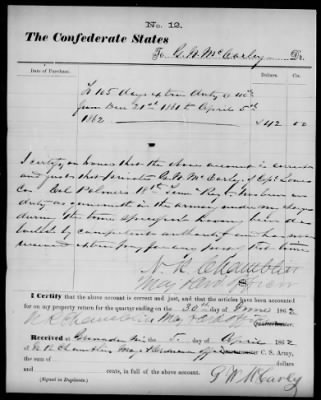 No. 12.
The Confederate States
To G W McCarley Dr.
Date of Purchase. Dollars. Cts.
To 105 days extra duty @ 40c
from Dec 21st 1861 to April 5th
1862 $42.00
I certify on honor that the above account is correct
and just that private G. W. McCarley of Capt Lowes
Co. Col Palmers 18th Tenn Regt has been on
duty as in the armory under my charge
during the time specified
by competent authority and has not
received extra pay for any part of the time
N. R. Chambliss
Maj
I Certify that the above account is correct and just, and that the articles have been accounted
for on my property return for the quarter ending on the 30th of June 1862
N R Chambliss Maj
Quartermaster.
Received at the 5th of April 1862
of N R Chambliss Maj C. S. Army,
the sum of dollars
and cents, in full of the above account.
(Signed in Duplicate.) G W McCarley